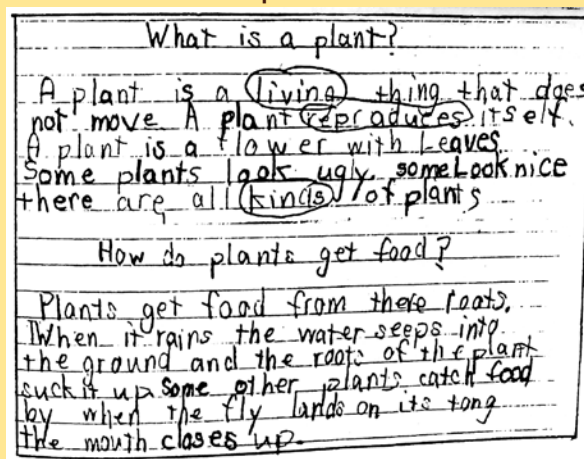 What is a plant?
A plant is a living thing that does
not move A plant reproduces itself.
A plant is a flower with Leaves.
Some plants look ugly. some Look nice
there are all kinds of plants
How do plants get food?
Plants get food from there roots.
When it rains the water seeps into
the ground and the roots of the plant
suck it up some other plants catch food
by when the fly lands on its tong
the mouth closes up.